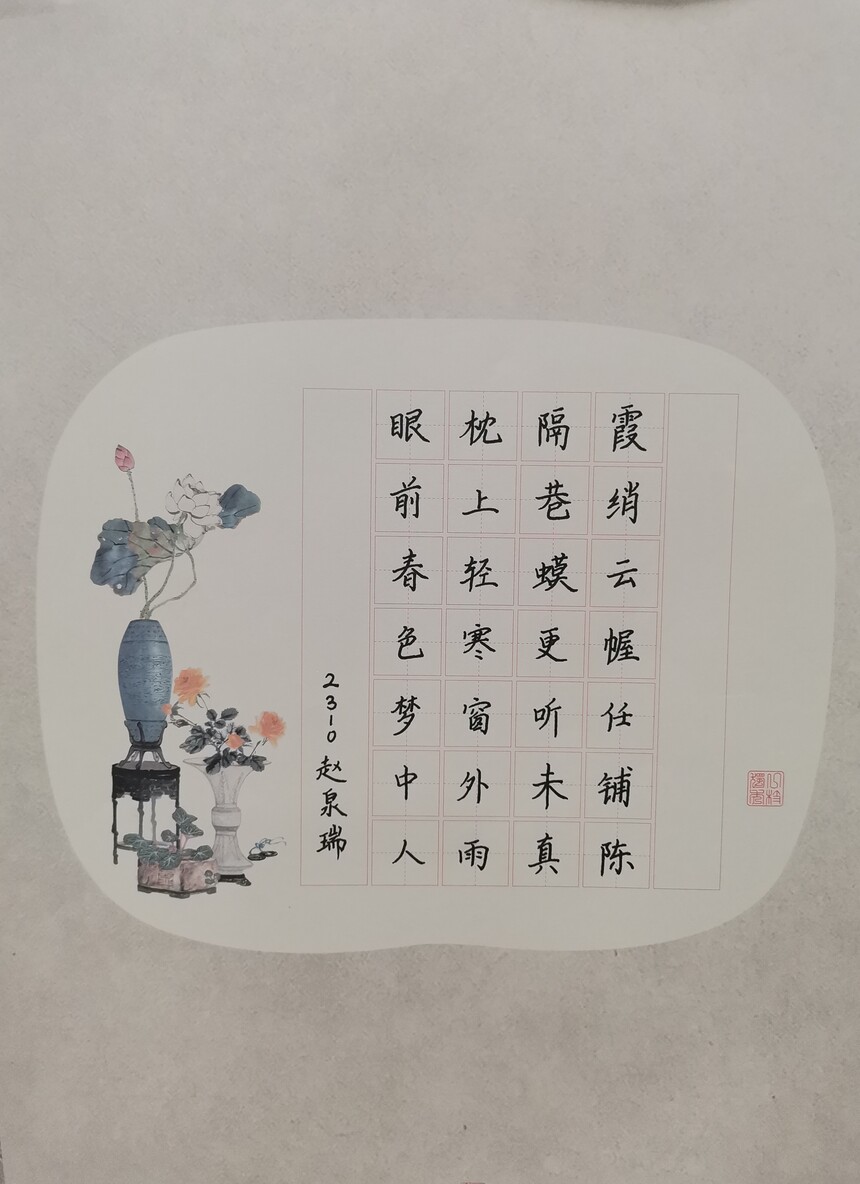 霞绡云幄任铺陈
隔巷蟆更听未真
枕上轻寒窗外雨
眼前春色梦中人
2310赵泉瑞